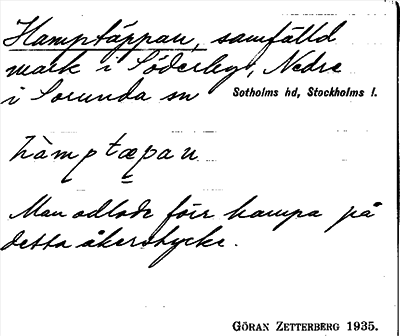 Hamptäppan, samfälld
mark i Söderby, Nedre
i Sorunda sn Sotholms hd, Stockholms l.
hàmptæpan
Man odlade förr hampa på
detta åkerstycke.
GÖRAN ZETTERBERG 1935.